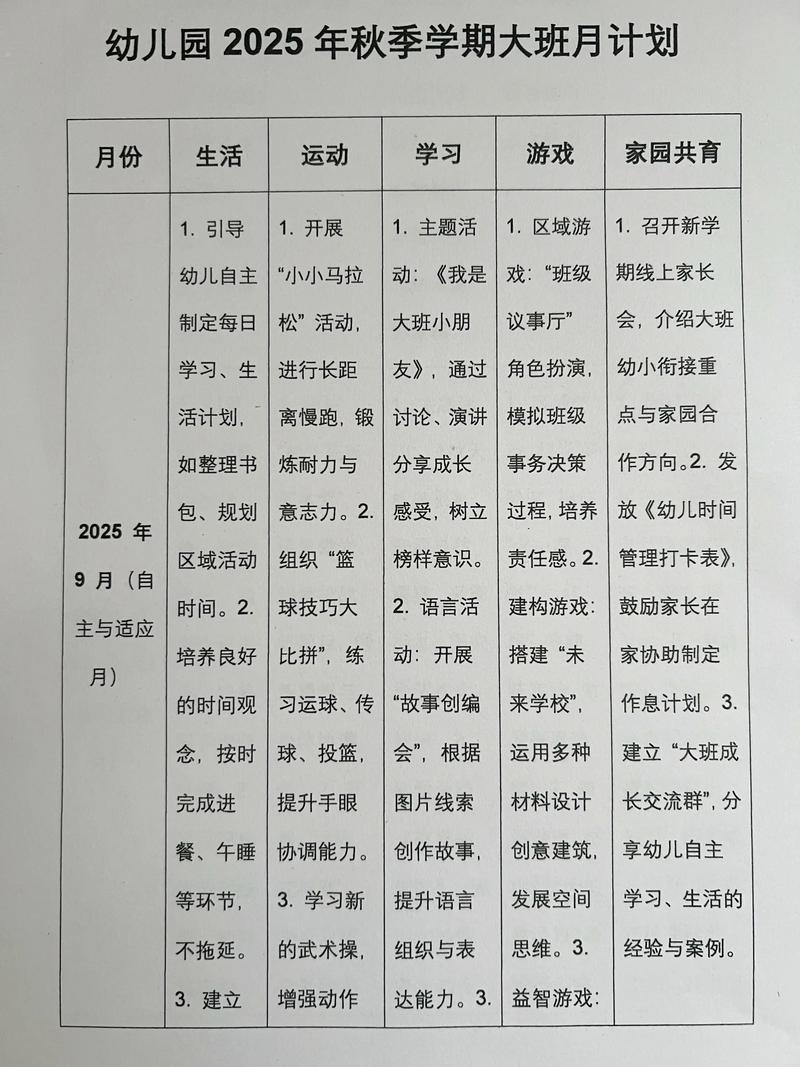 幼儿园 2025 年秋季学期大班月计划
月份
生活
运动
学习
游戏
家园共育
2025 年
9 月（自
主与适应
月）
1. 引导
幼儿自主
制定每日
学习、生
活计划，
如整理书
包、规划
区域活动
时间。2.
培养良好
的时间观
念，按时
完成进
餐、午睡
等环节，
不拖延。
3. 建立
1. 开展
“小小马拉
松”活动，
进行长距
离慢跑，锻
炼耐力与
意志力。2.
组织“篮
球技巧大
比拼”，练
习运球、传
球、投篮，
提升手眼
协调能力。
3. 学习新
的武术操，
增强动作
1. 主题活
动：《我是
大班小朋
友》，通过
讨论、演讲
分享成长
感受，树立
榜样意识。
2. 语言活
动：开展
“故事创编
会”，根据
图片线索
创作故事，
提升语言
组织与表
达能力。3.
1. 区域游
戏：“班级
议事厅”
角色扮演，
模拟班级
事务决策
过程，培养
责任感。2.
建构游戏：
搭建“未
来学校”，
运用多种
材料设计
创意建筑，
发展空间
思维。3.
益智游戏：
1. 召开新学
期线上家长
会，介绍大班
幼小衔接重
点与家园合
作方向。2. 发
放《幼儿时间
管理打卡表》，
鼓励家长在
家协助制定
作息计划。3.
建立“大班成
长交流群”，分
享幼儿自主
学习、生活的
经验与案例。